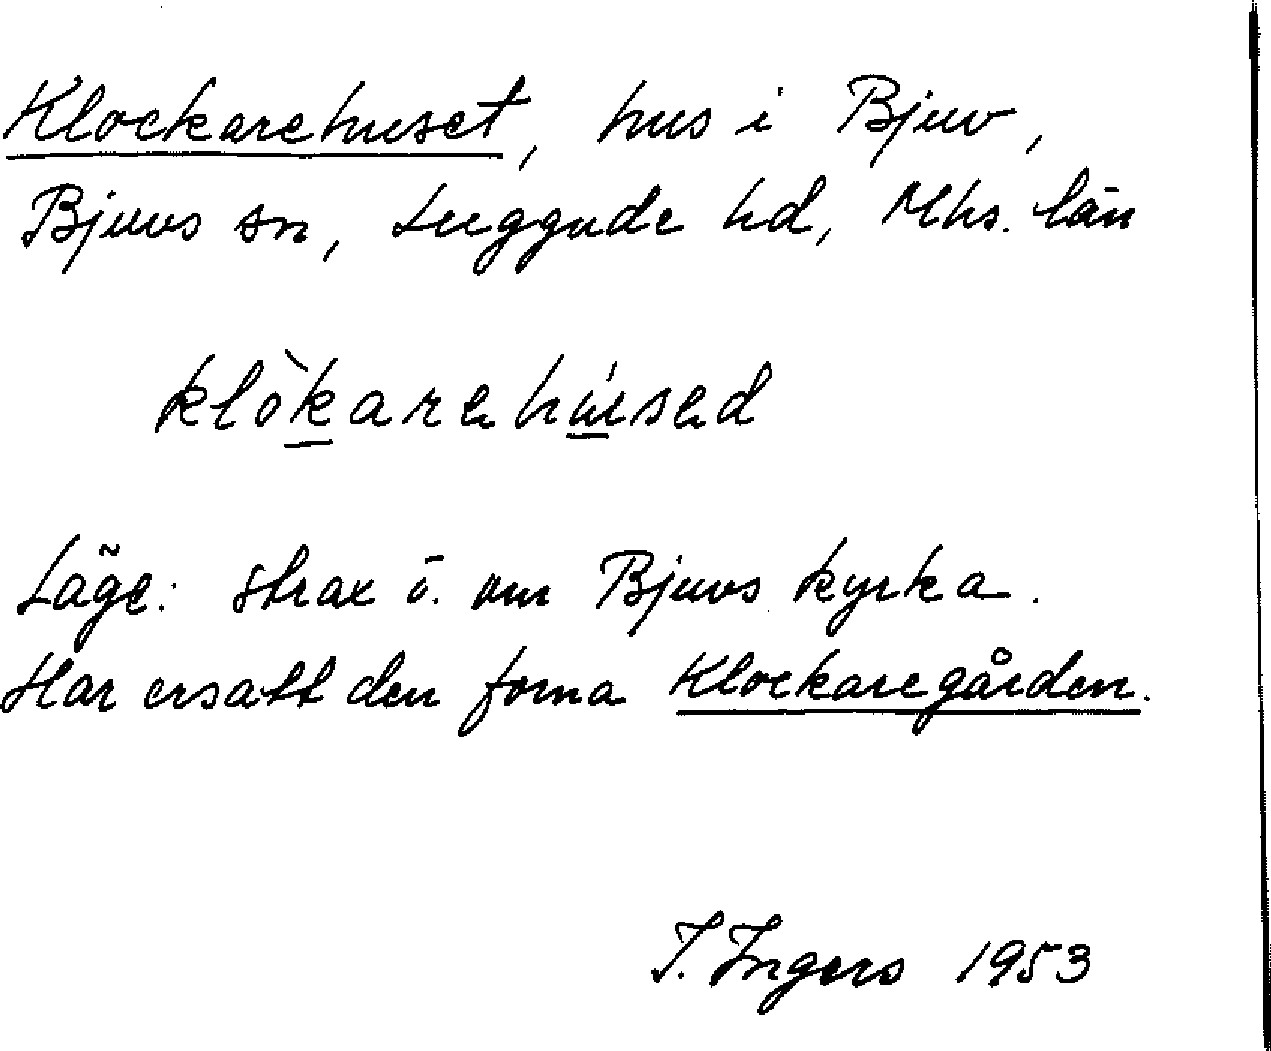 Klockarehuset, hus i Bjuv,
Bjuvs sn, Luggude hd, Mhs. län
klòkarehúsed
Läge: strax ö. om Bjuvs kyrka.
Har ersatt den forna Klockaregården.
I. Ingers 1953